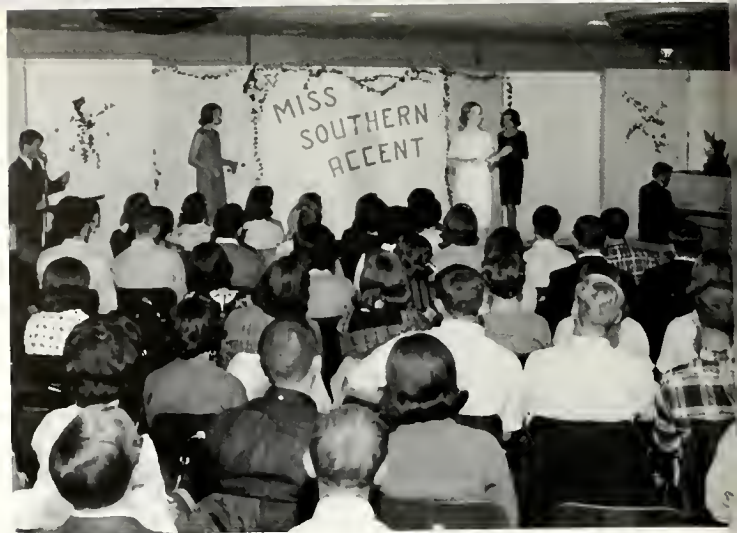 MISS
SOUTHERN
ACCENT